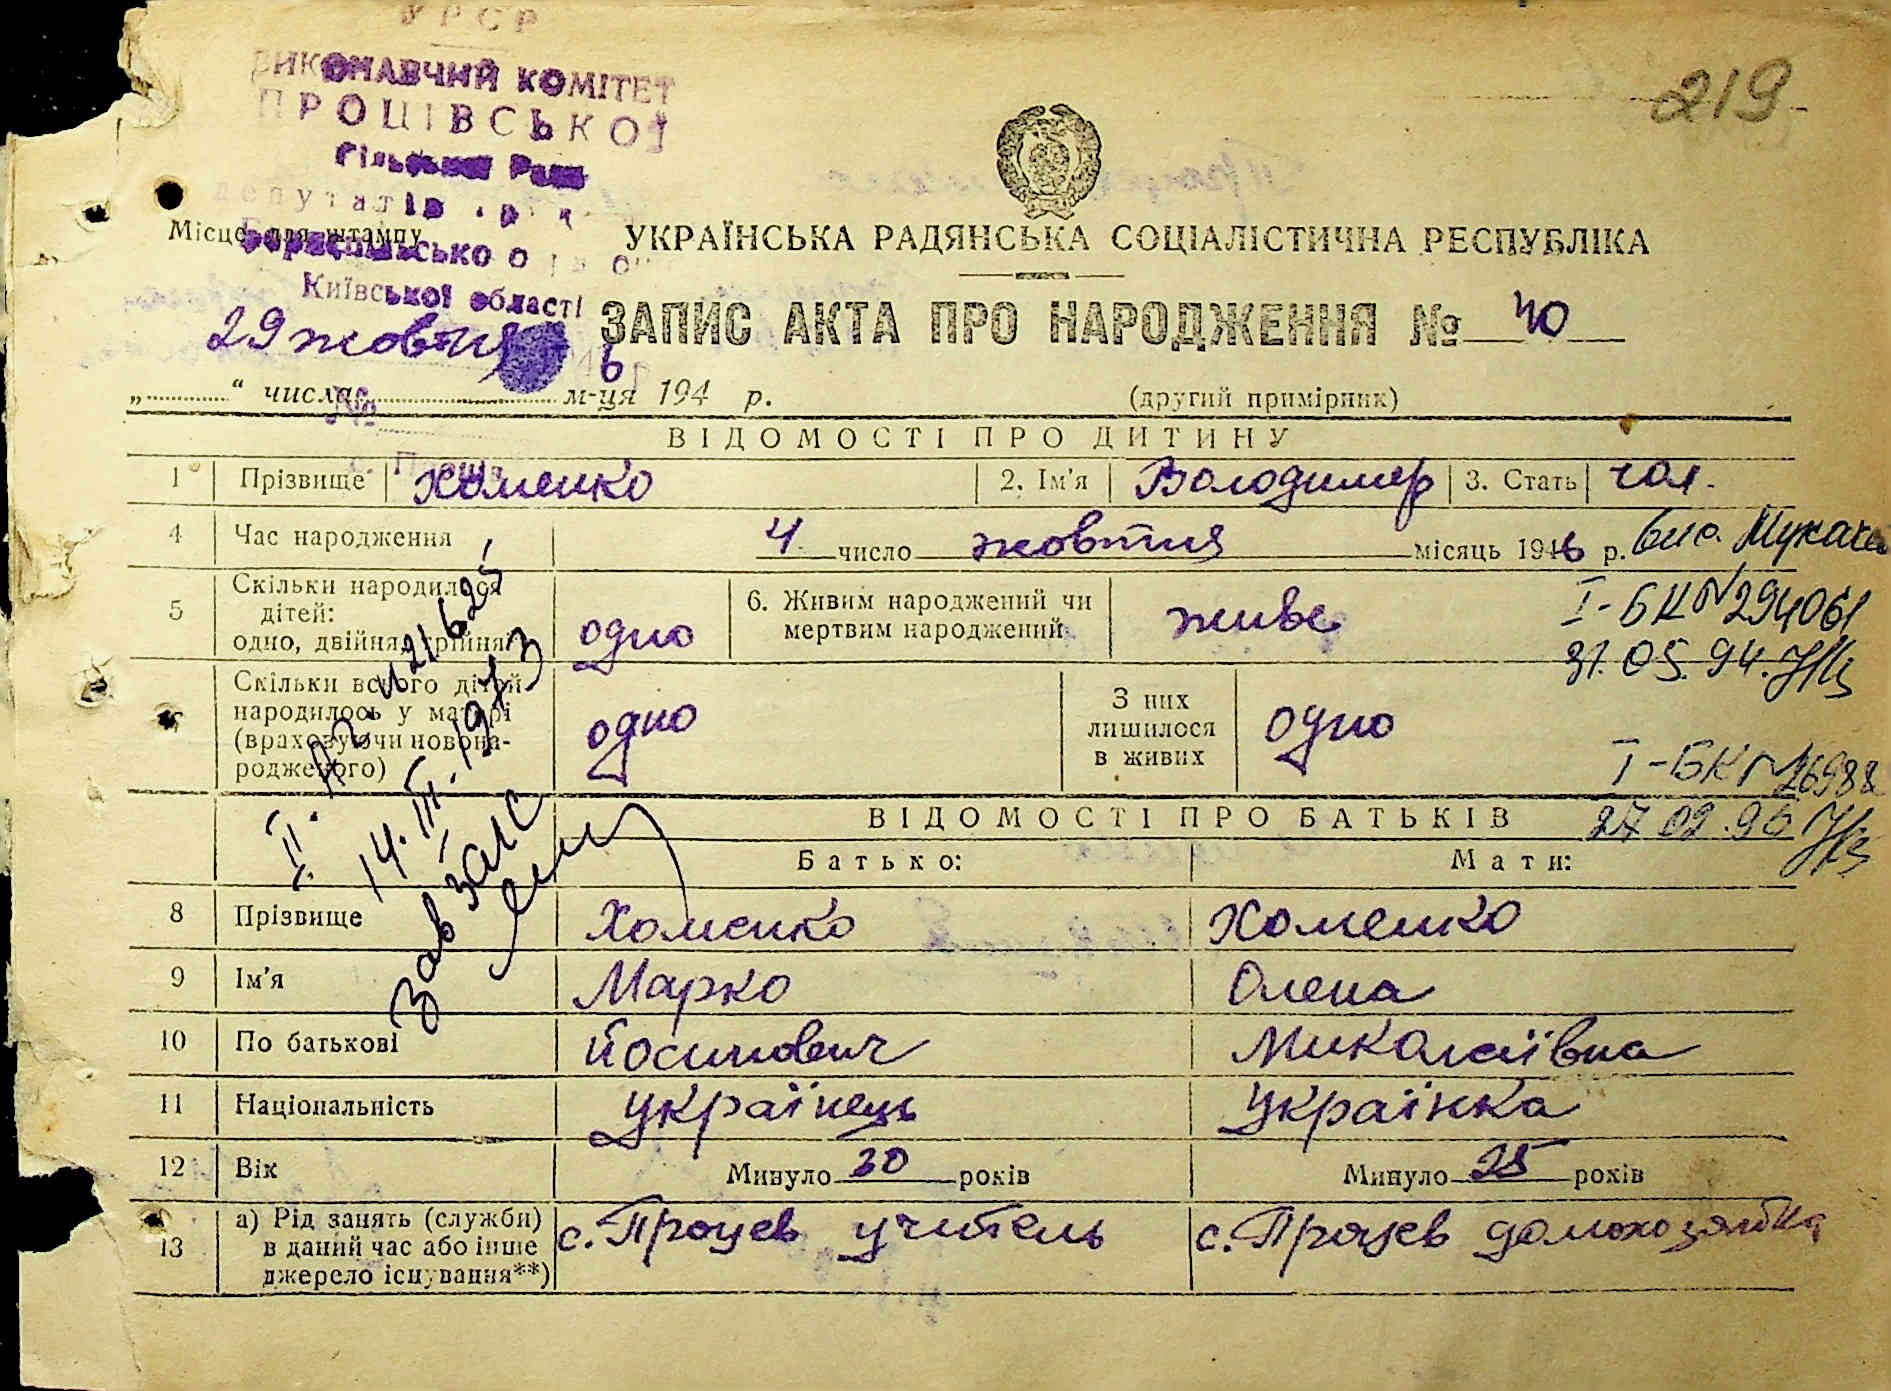 УРСР
ВИКОНАВЧИЙ КОМІТЕТ
ПРОЦІВСЬКОЇ
Сільської Ради
депутатів
Бориспільсько о
Київської області
219
Місце для штампу
УКРАЇНСЬКА РАДЯНСЬКА СОЦІАЛІСТИЧНА РЕСПУБЛІКА
ЗАПИС АКТА ПРО НАРОДЖЕННЯ № 40
29 жовтня 6
„ “ числа м-ця 194 р. (другий примірник)
№
ВІДОМОСТІ ПРО ДИТИНУ
1 Прізвище Хоменко 2. Ім'я Володимер 3. Стать чол.
4 Час народження 4 число жовтня місяць 1946 р.
5 Скільки народилося дітей: одно, двійня, трійня одно 6. Живим народжений чи мертвим народжений живе
І-БК № 294061
31.05.94.
7 Скільки всього дітей народилось у матері (враховуючи новонародженого) одно З них лишилося в живих одно
І-БК №
27 02.96
ІІ. 421625
14.ІІІ.1973
Зав ЗАГС
ВІДОМОСТІ ПРО БАТЬКІВ
Батько: Мати:
8 Прізвище Хоменко Хоменко
9 Ім'я Марко Олена
10 По батькові Йосипович Миколаївна
11 Національність Українець Українка
12 Вік Минуло 30 років Минуло 25 років
13 а) Рід занять (служби) в даний час або інше джерело існування**) с. Процев учитель с. Процев домохозяйка